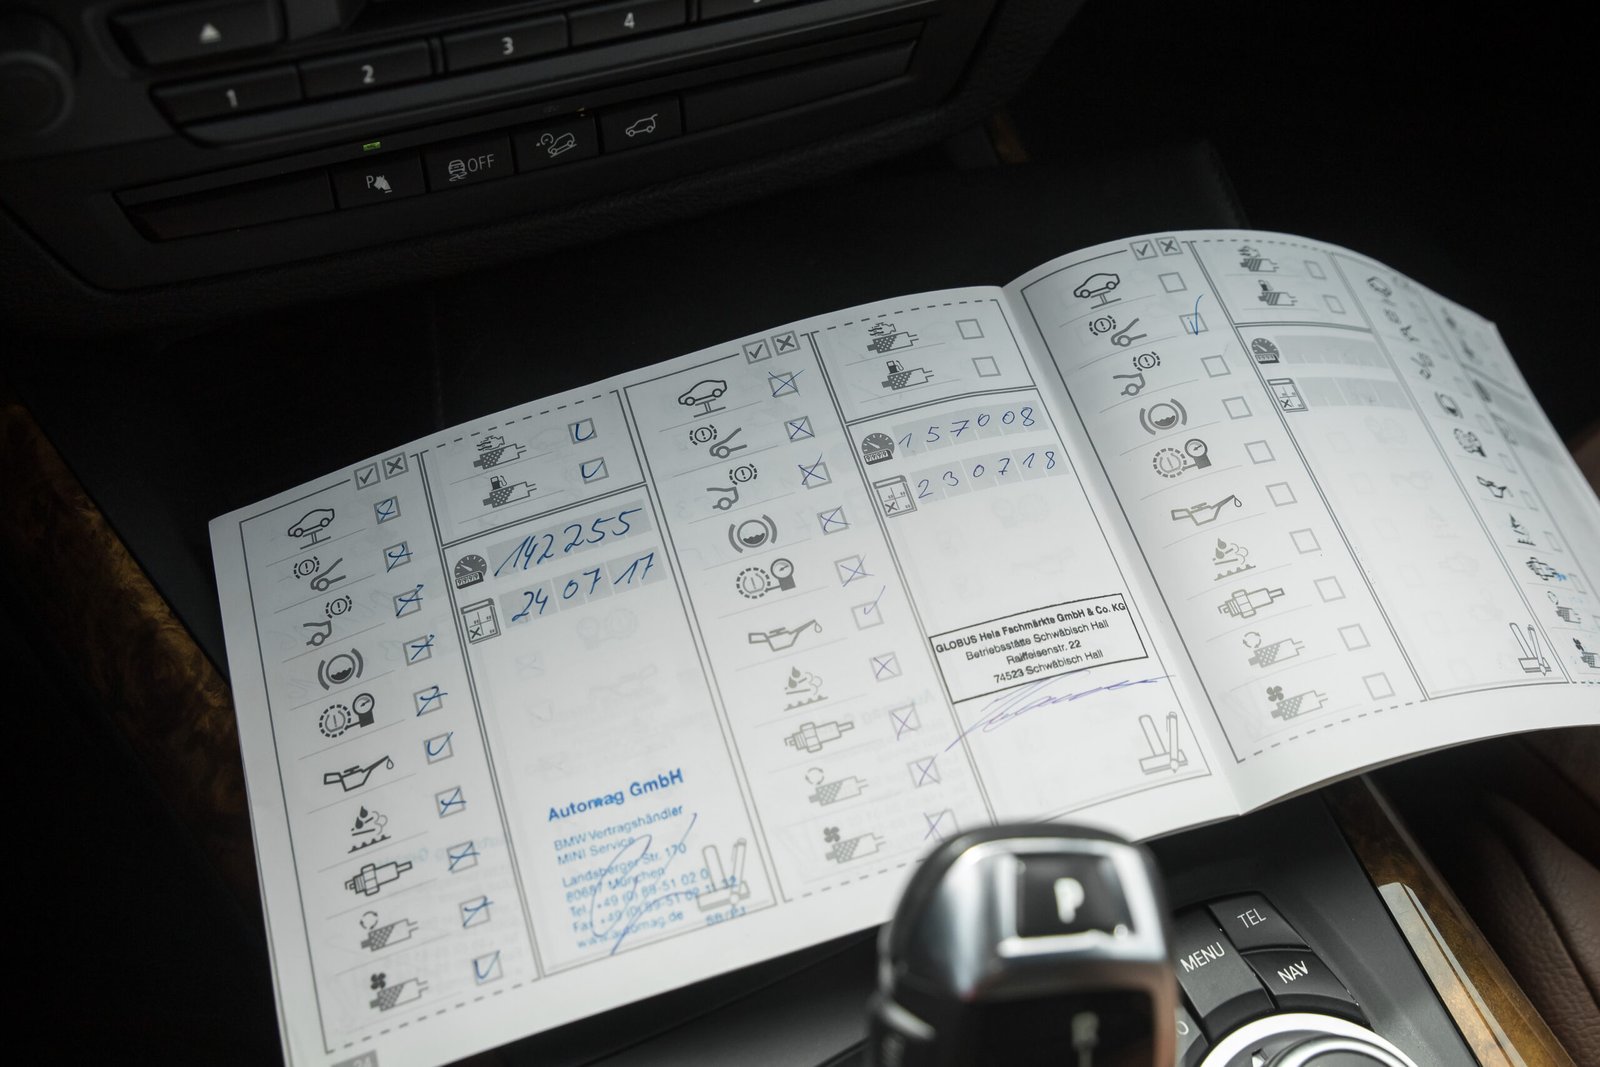 1
2
3
4
P
OFF
142255
24 07 17
Automag GmbH
BMW Vertragshändler
MINI Service
Landsberger Str. 170
80687 München
Tel. +49 (0) 89-51 02 0
Fax +49 (0) 89-51 02
www.automag.de
157008
230718
GLOBUS Hela Fachmärkte GmbH & Co. KG
Betriebsstätte Schwäbisch Hall
Raiffeisenstr. 22
74523 Schwäbisch Hall
P
MENU
TEL
NAV